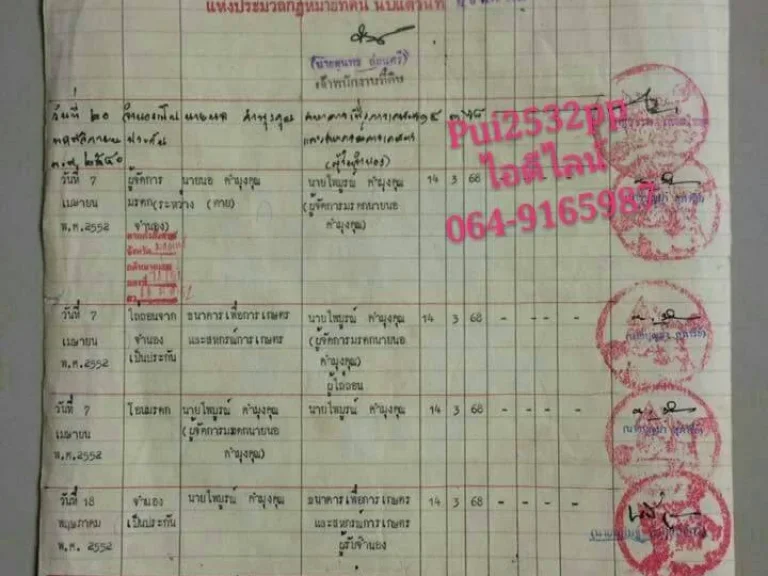 แห่งประมวลกฎหมายที่ดิน นับแต่วันที่
เจ้าพนักงานที่ดิน
วันที่ ๒๐ จำนองเป็น นายนอ คำมุงคุณ ธนาคารเพื่อการเกษตร ๑๔ ๓ ๖๘
ประกัน และสหกรณ์การเกษตร
พ.ศ. ๒๕๔๐ (ผู้รับจำนอง)
Pui2532pp
ไอดีไลน์
064-9165987
วันที่ 7 ผู้จัดการ นายนอ คำมุงคุณ นายไพบูรณ์ คำมุงคุณ 14 3 68
เมษายน มรดก(ระหว่าง (ตาย) (ผู้จัดการมรดกนายนอ
พ.ศ.2552 จำนอง) คำมุงคุณ)
วันที่ 7 ไถ่ถอนจาก ธนาคารเพื่อการเกษตร นายไพบูรณ์ คำมุงคุณ 14 3 68 - - - -
เมษายน จำนอง และสหกรณ์การเกษตร (ผู้จัดการมรดกนายนอ
พ.ศ.2552 เป็นประกัน คำมุงคุณ)
ผู้ไถ่ถอน
วันที่ 7 โอนมรดก นายไพบูรณ์ คำมุงคุณ นายไพบูรณ์ คำมุงคุณ 14 3 68 - - - -
เมษายน (ผู้จัดการมรดกนายนอ
พ.ศ.2552 คำมุงคุณ)
วันที่ 18 จำนอง นายไพบูรณ์ คำมุงคุณ ธนาคารเพื่อการเกษตร 14 3 68 - - - -
พฤษภาคม เป็นประกัน และสหกรณ์การเกษตร
พ.ศ. 2552 ผู้รับจำนอง